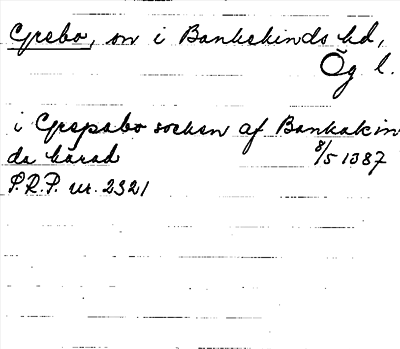 Grebo, sn i Bankekinds hd,
Ög l.
i Grepabo sochen af Bankakin
da härad 8/5 1387
S.R.P. nr. 2321